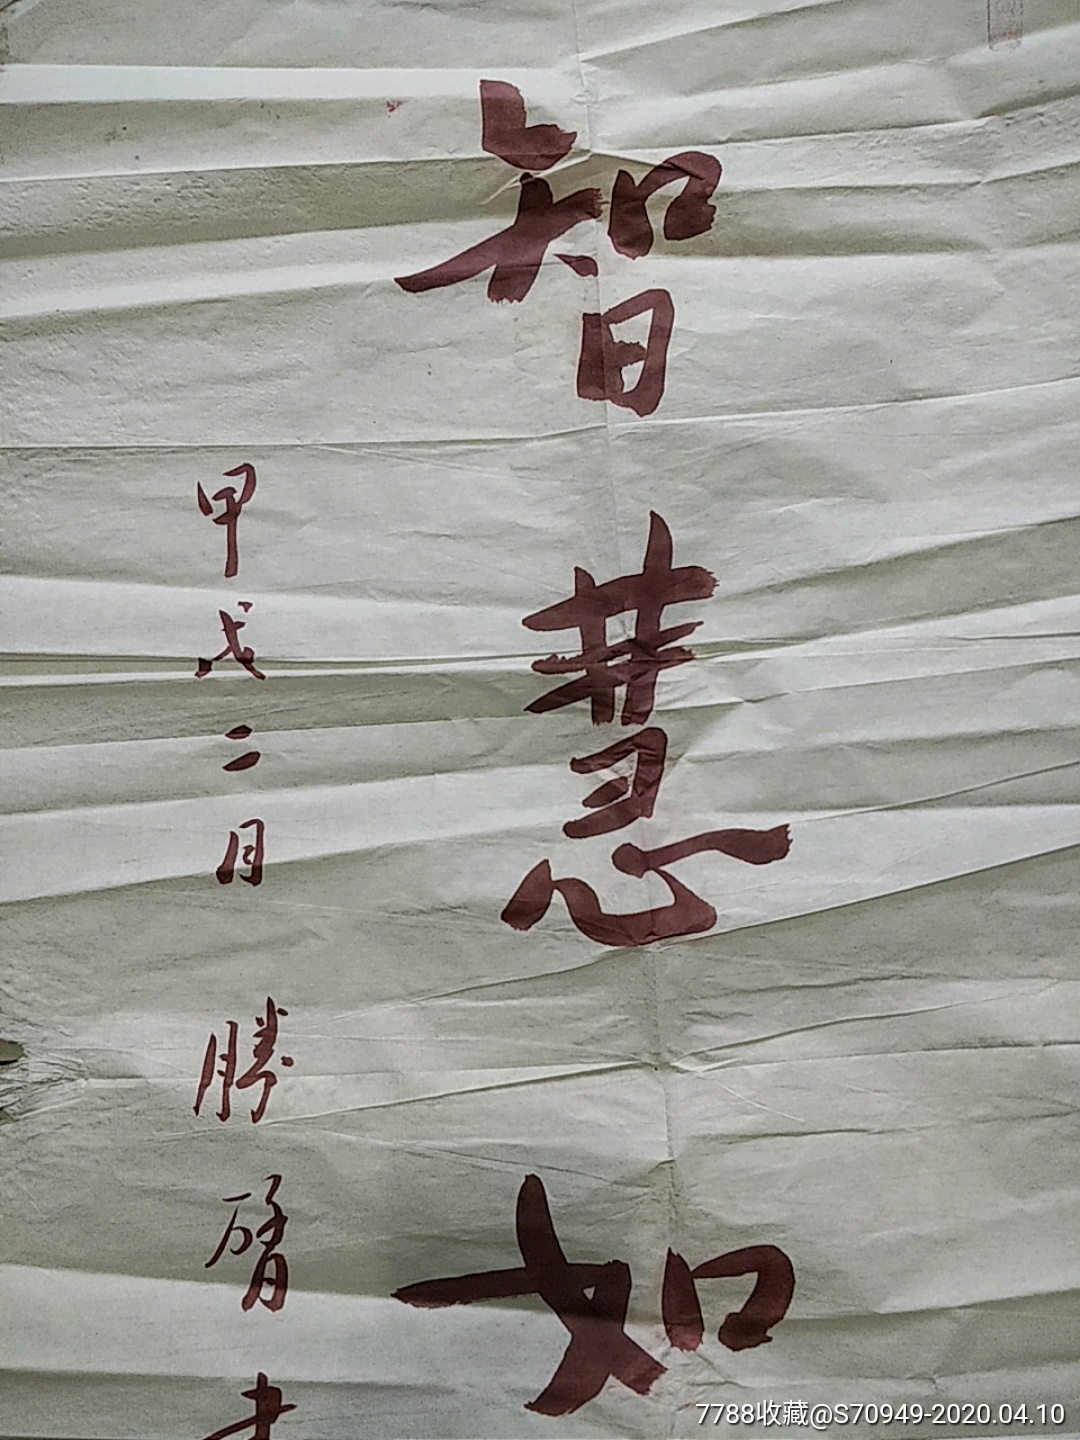 智慧如
甲戌二月 勝
7788收藏@S70949-2020.04.10